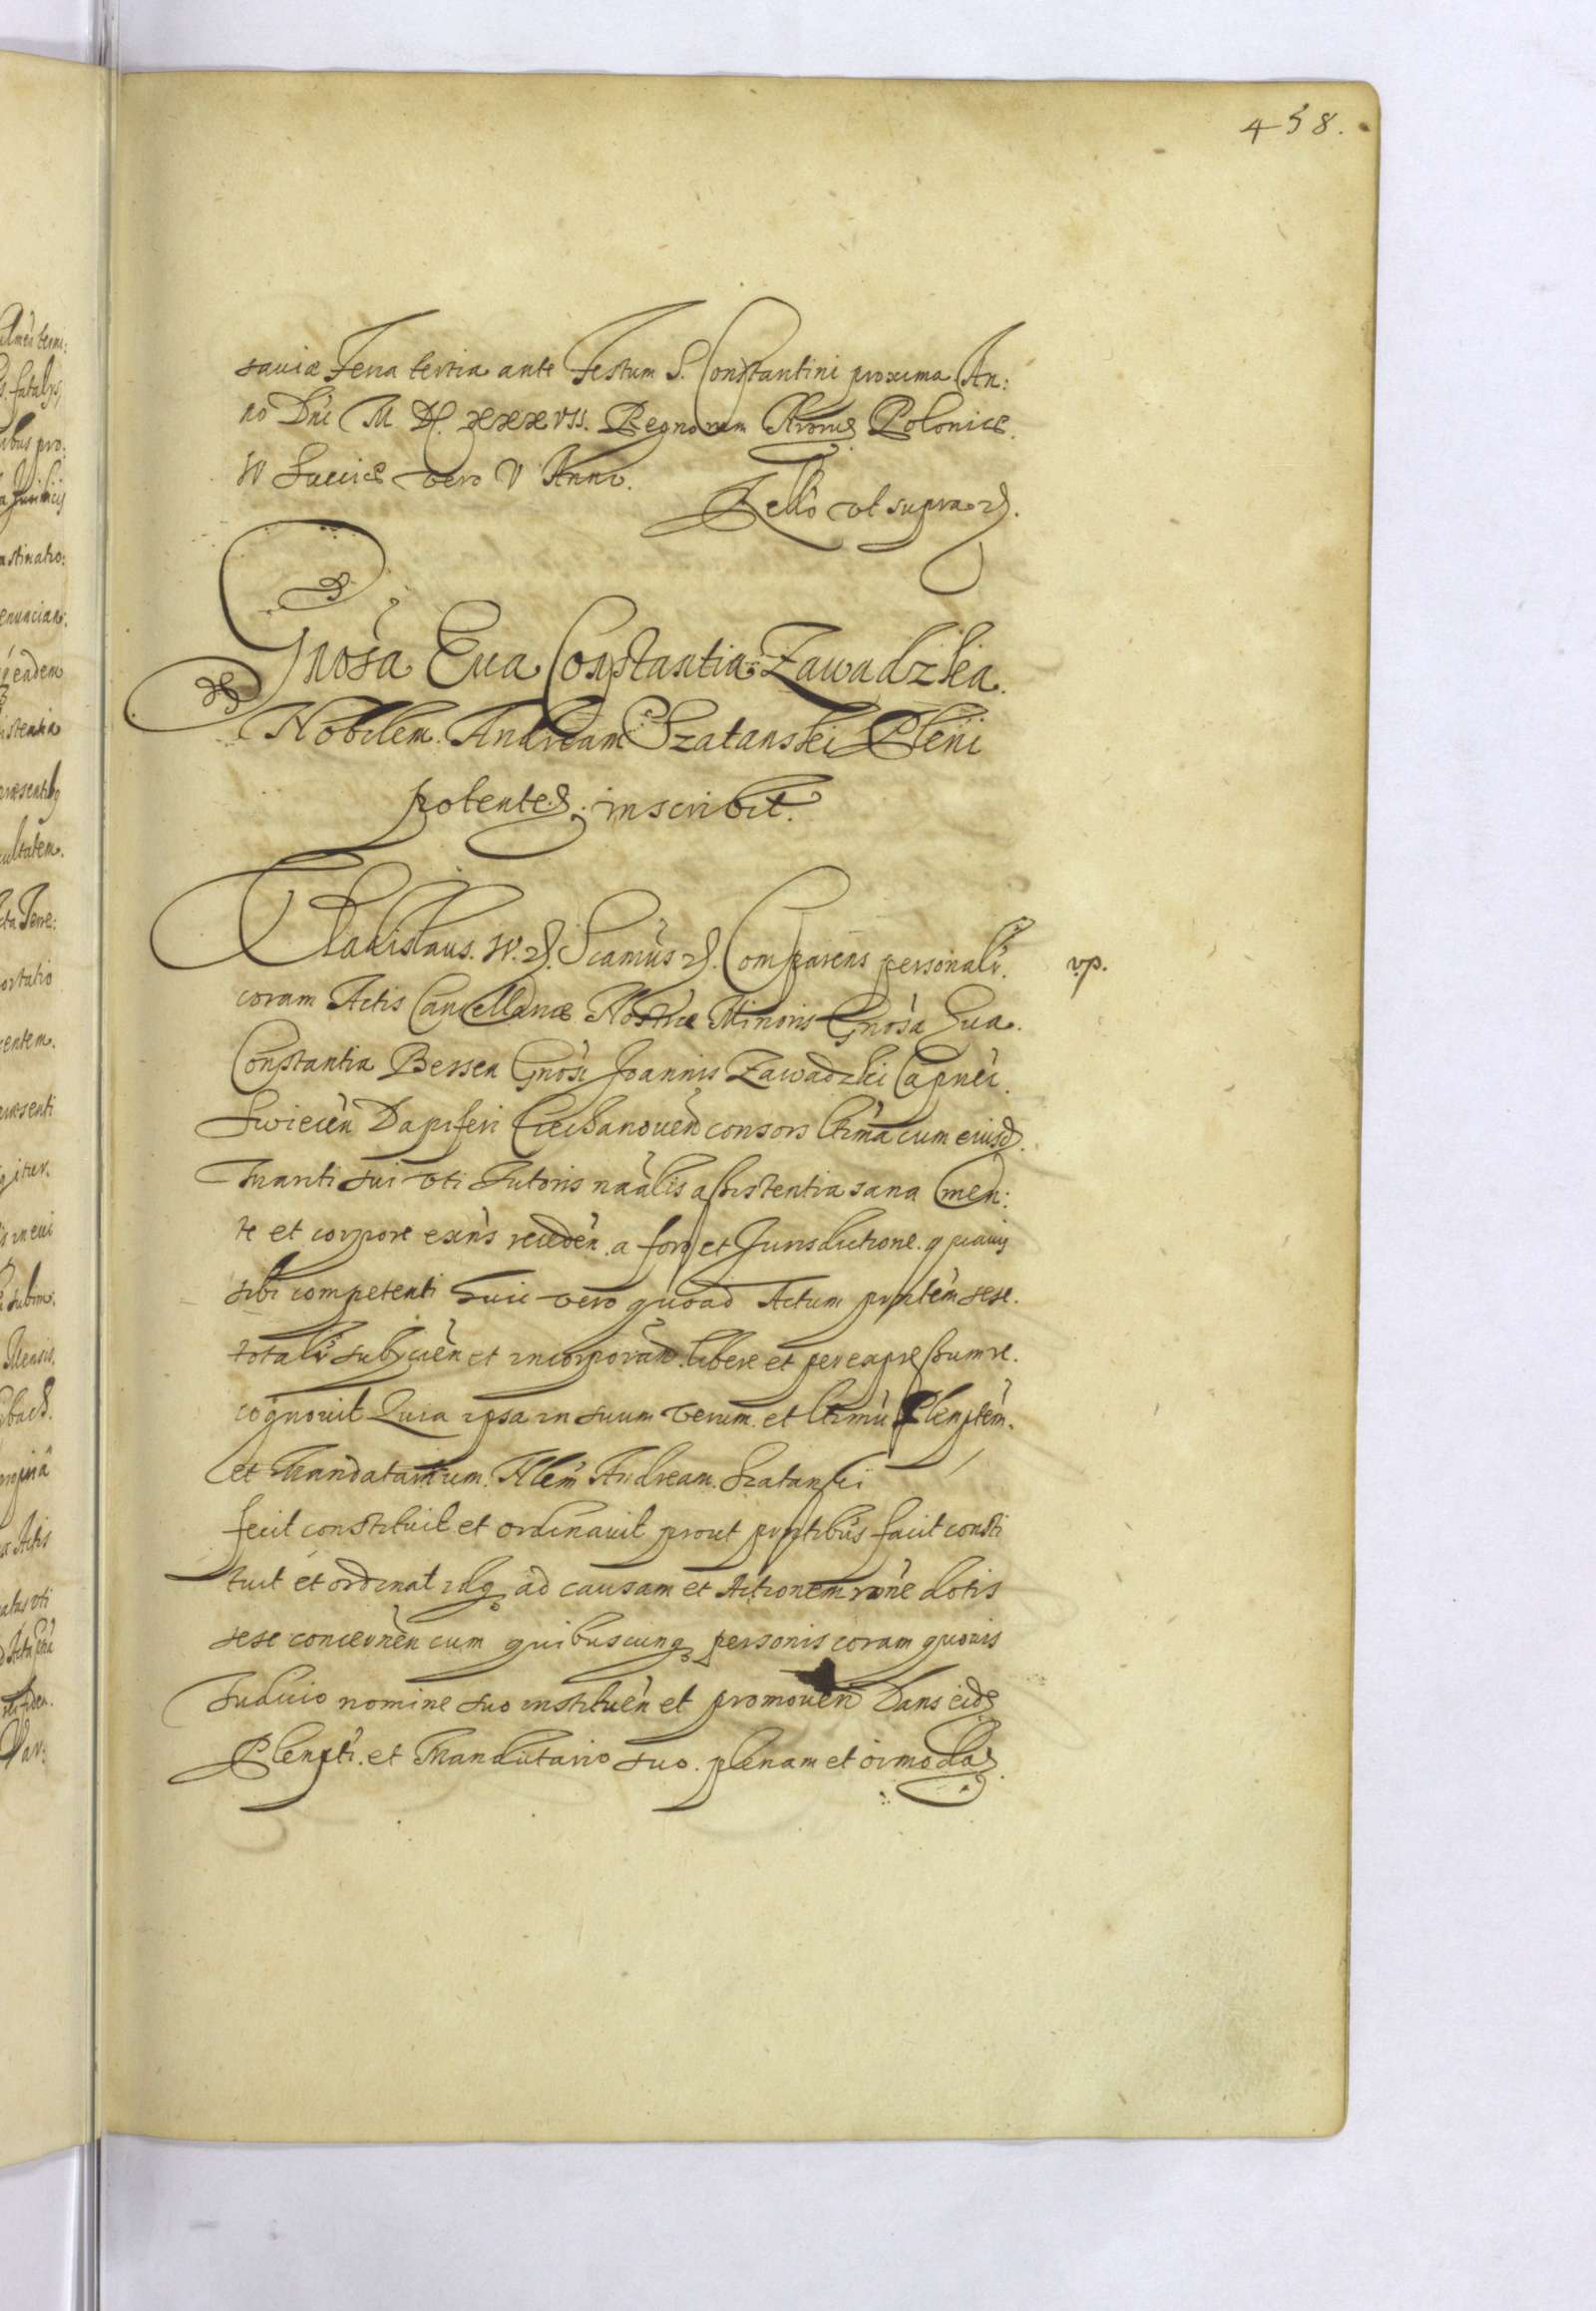 458.
sauiæ Feria tertia ante Festum S. Constantini proxima An:
no Dni M DC xxxvii. Regnorum Nrorum Poloniæ
IV Sueciæ vero V Anno.
Relio vt supra
Gnosa Eua Constantia Zawadzka
Nobilem Andream Szatanski Pleni
potentem inscribit.
Vladislaus IV. Scamus Comparens personalr.
vp.
coram Actis Cancellariæ Nostræ Minoris Gnosa Eua
Constantia Bessen Gnosi Joannis Zawadzki Capnei
Swiecen Dapiferi Ciechanouen consors ltima cum eiusd
Mariti sui vti Tutoris nãalis assistentia sana men:
te et corpore exñs receden a foro et Jurisdictione quauis
sibi competenti huic vero quoad Actum pñtem sese
totalr subycien et incorporan libere et per expressum re
cognouit Quia ipsa in suum verum et ltimũ Plenptem
et Mandatarium Nlem Andream Szatanski
fecit constituit et ordinauit prout pñtibus facit consti
tuit et ordinat idq ad causam et Actionem rõne dotis
sese concernen cum quibuscunq personis coram quouis
Judicio nomine suo instituen et promouen Dans eid
Plenpti et Mandatario suo plenam et oimodam